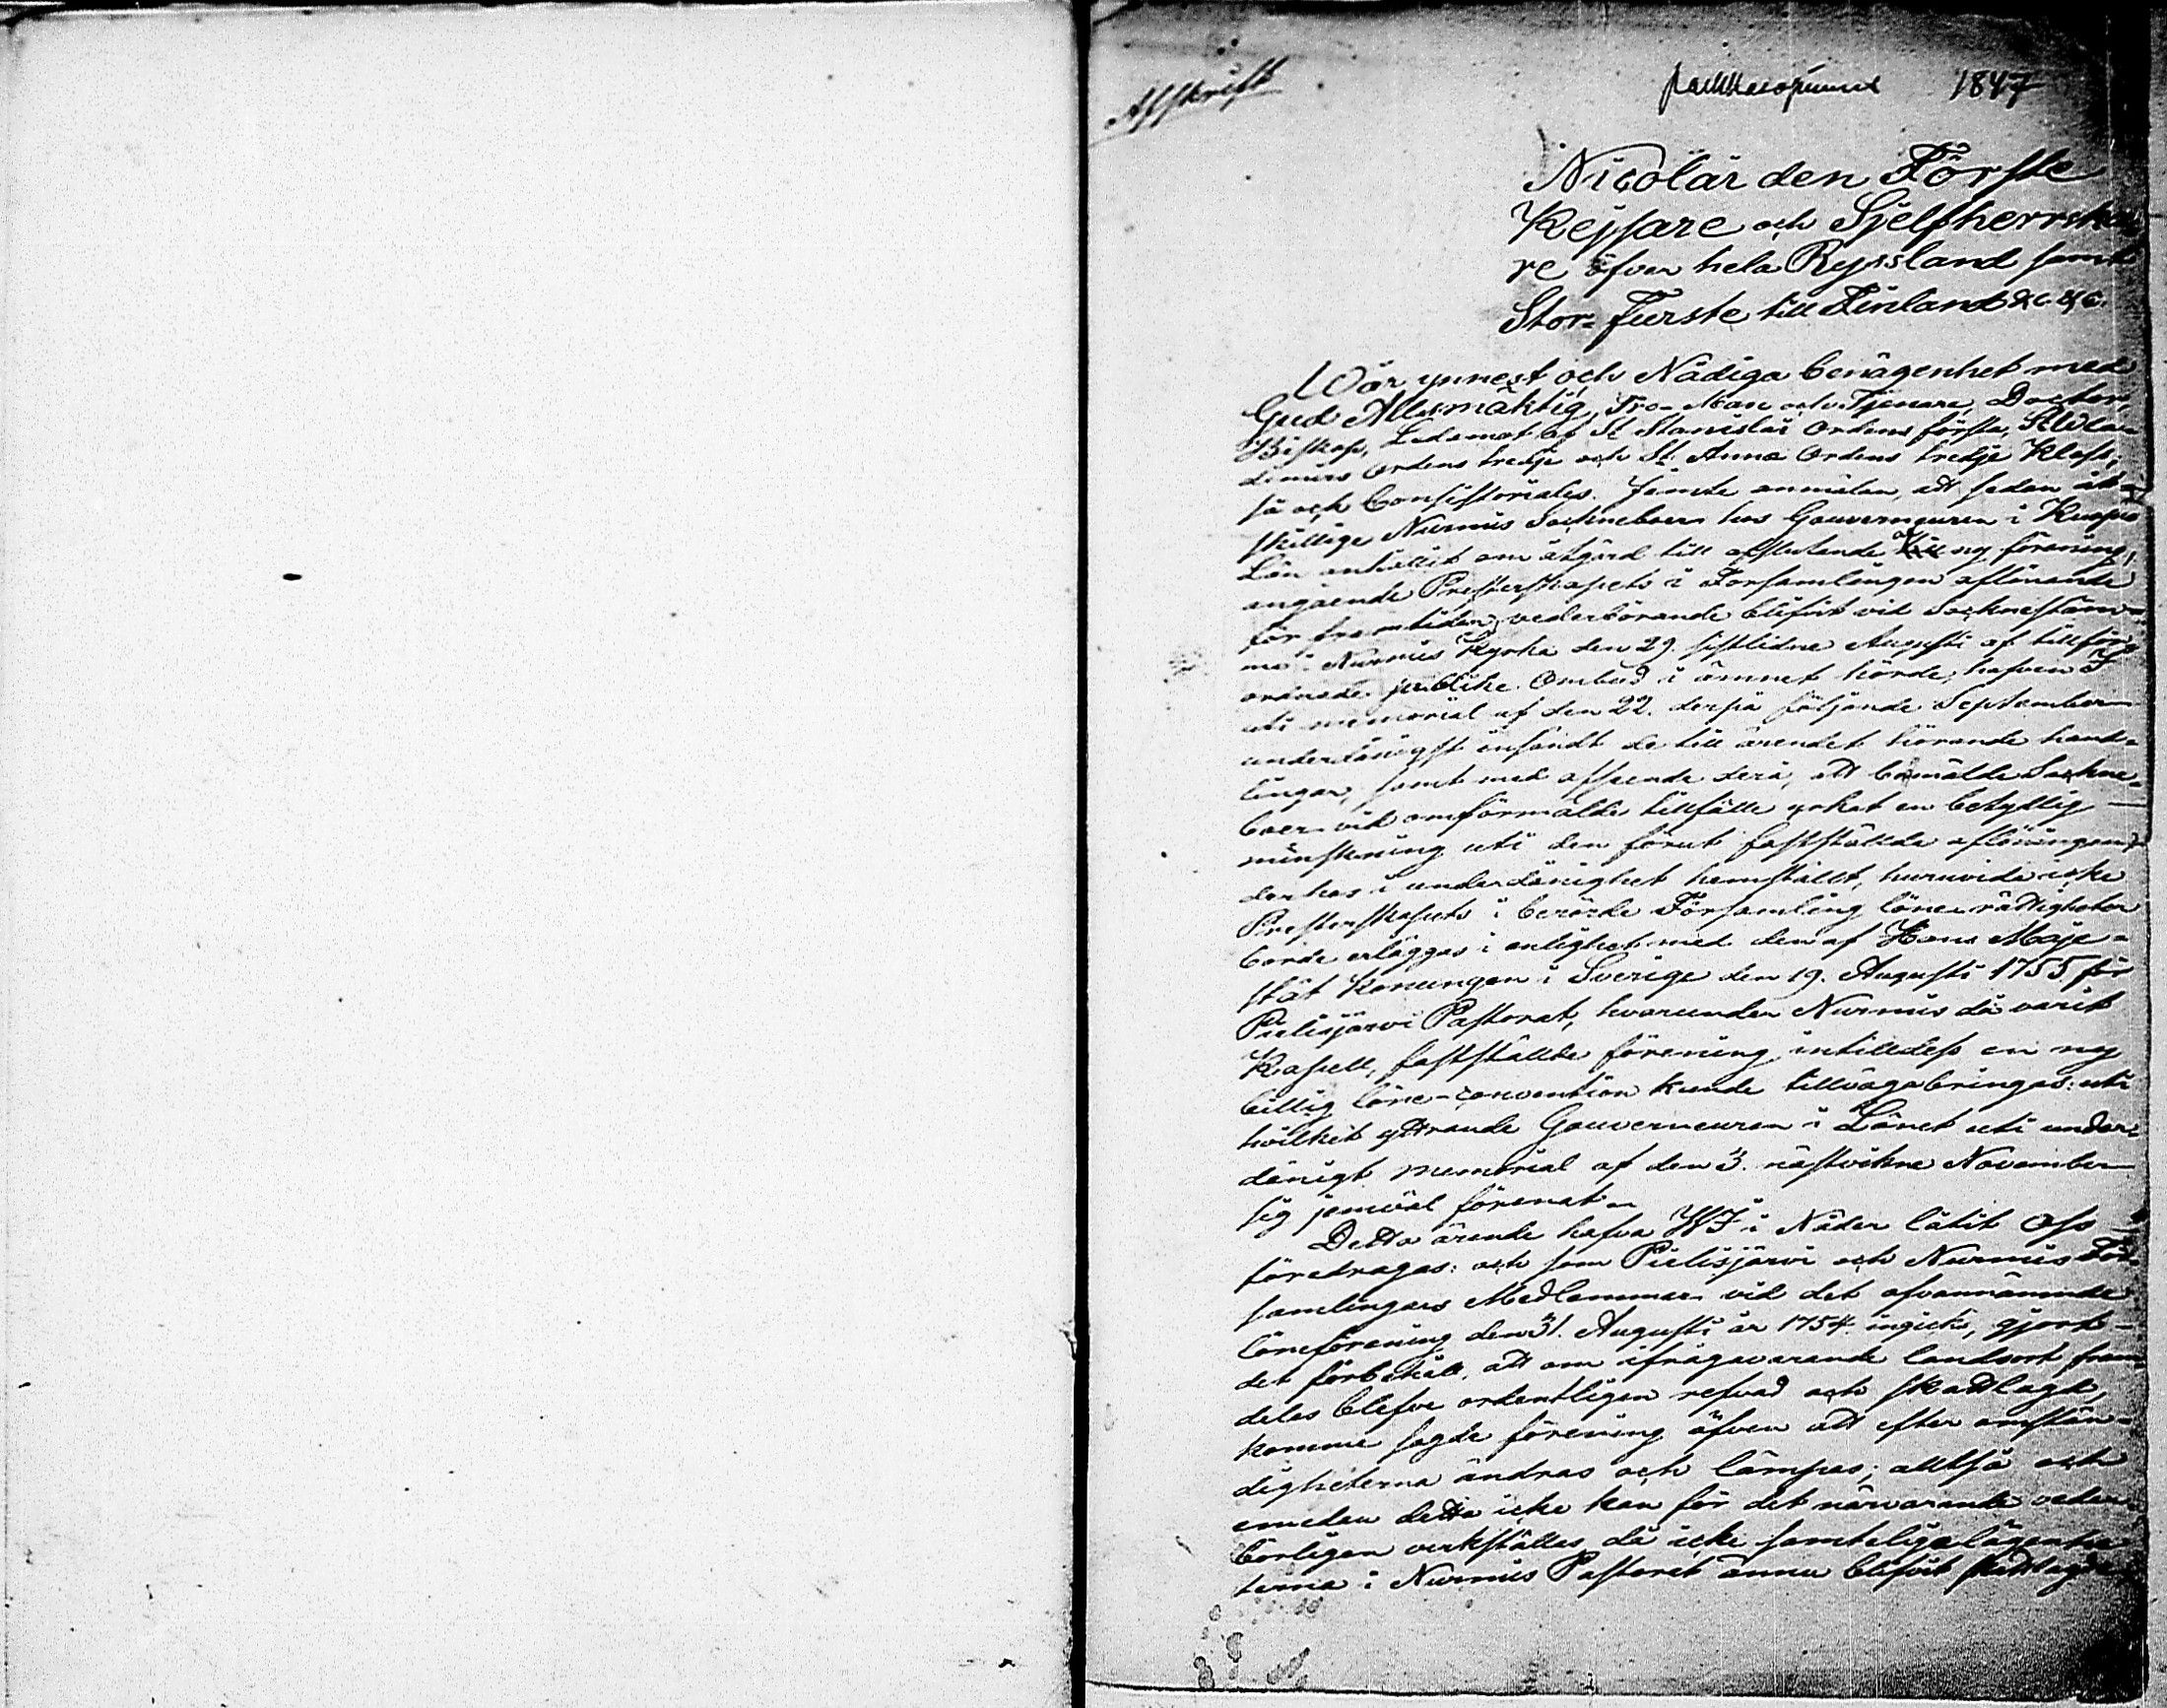 Afskrift
palkkasopimus 1847
Nicolai den Förste
Kejsare och Sjelfherrska-
re öfver hela Ryssland samt
Stor-Furste till Finland &c. &c.
Wår ynnest och Nådiga benägenhet med
Gud Allsmäktig, Tro-Man och Tjenare, Doctor,
Biskop, Ledamot af St Stanislai Ordens första, St Wla-
dimirs Ordens tredje och St Anna Ordens tredje Klass,
så och Consistoriales. Jemte anmälan, att sedan åt-
skillige Nurmis Sockneboer hos Gouverneuren i Kuopio
Län anhållit om åtgärd till afslutande af ny förening,
angående Presterskapets i Församlingen aflönande
för framtiden, vederbörande blifvit vid Sockneståm-
ma i Nurmis Kyrka den 29. sistlidne Augusti af tillför-
ordnade publike Ombud i ämnet hörde, hafven I
uti memorial af den 22. derpå följande September
underdånigst insändt de till ärendet hörande hand-
lingar, samt med afseende derå, att bemälde Sockne-
boer vid omförmälde tillfälle yrkat en betydlig
minskning uti den förut fastställda aflöningen,
derhos i underdånighet hemställt, huruvida icke
Presterskapets i berörde Församling löne-rättigheter
borde erläggas i enlighet med den af Hans Maje-
stät Konungen i Sverige den 19. Augusti 1755 för
Pielisjärvi Pastorat, hvarunder Nurmis då varit
Kapell, fastställde förening, intilldess en ny
billig löne-convention kunde tillvägabringas: uti
hvilket yttrande Gouverneuren i Länet uti under-
dånigt memorial af den 3. nästvikne November
sig jemväl förenat.
Detta ärende hafva WJ i Nåder låtit Oss
föredragas: och som Pielisjärvi och Nurmis För-
samlingars Medlemmar vid det ofvannämnde
löneförening den 31. Augusti år 1754 ingicks, gjort
det förbehåll, att om ifrågavarande landsort fram-
deles blefve ordentligen refvad och skattlagd,
komme sagde förening äfven att efter omstän-
digheterna ändras och lämpas; alltså och
emedan detta icke kan för det närvarande veder-
börligen verkställas, då icke samtelige lägenhe-
terna i Nurmis Pastorat ännu blifvit skattlagde